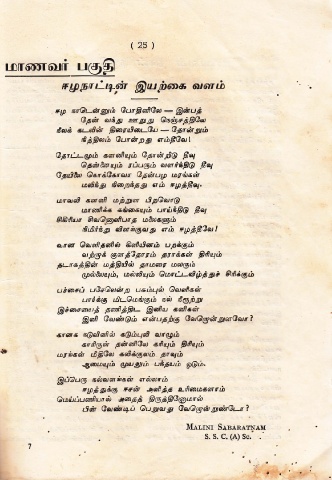 ( 25 )
மாணவர் பகுதி
ஈழநாட்டின் இயற்கை வளம்
ஈழ நாடென்னும் போதினிலே — இன்பத்
தேன் வந்து ஊறுது நெஞ்சத்திலே
நீலக் கடலின் திரையிடையே — தோன்றும்
நித்திலம் போன்றது எம்தீவே!
தோட்டமும் களனியும் தோன்றிடு தீவு
தென்னையும் ரப்பரும் வளர்ந்திடு தீவு
தேயிலை கொக்கோவா தேன்பழ மரங்கள்
மலிந்து நிறைந்தது எம் ஈழத்தீவு.
மாவலி களனி மற்றுள பிறவொடு
மாணிக்க கங்கையும் பாய்ந்திடு தீவு
சிகிரியா சிவனொளிபாத மலைகளும்
நிமிர்ந்து விளங்குவது எம் ஈழத்தீவே!
வான வெளிதனில் கிளியினம் பறக்கும்
வற்றுக் குளத்தோரம் தாராக்கள் திரியும்
தடாகத்தின் மத்தியில் தாமரை மலரும்
முல்லையும், மல்லியும் மொட்டவிழ்த்துச் சிரிக்கும்
பச்சைப் பசேலென்ற பசும்புல் வெளிகள்
பார்க்கு மிடமெங்கும் நல் நீரூற்று
இச்சையைத் தணித்திட இனிய கனிகள்
இனி வேண்டும் என்பதற்கு வேறென்றுளவோ?
கானக நடுவினில் கடும்புலி வாழும்
காரிருள் தன்னிலே கரியும் திரியும்
மரங்கள் மீதிலே கவிக்குலம் தாவும்
ஆமையும் முயலும் பந்தயம் ஓடும்.
இப்பெரு நல்வளங்கள் எல்லாம்
ஈழத்துக்கு ஈசன் அளித்த உரிமைகளாம்
மெய்ப்பணியால் அதைத் திருத்தினோமால்
பின் வேண்டிப் பெறுவது வேறென்றுண்டோ?
MALINI SABARATNAM
S. S. C. (A) Sc.
7